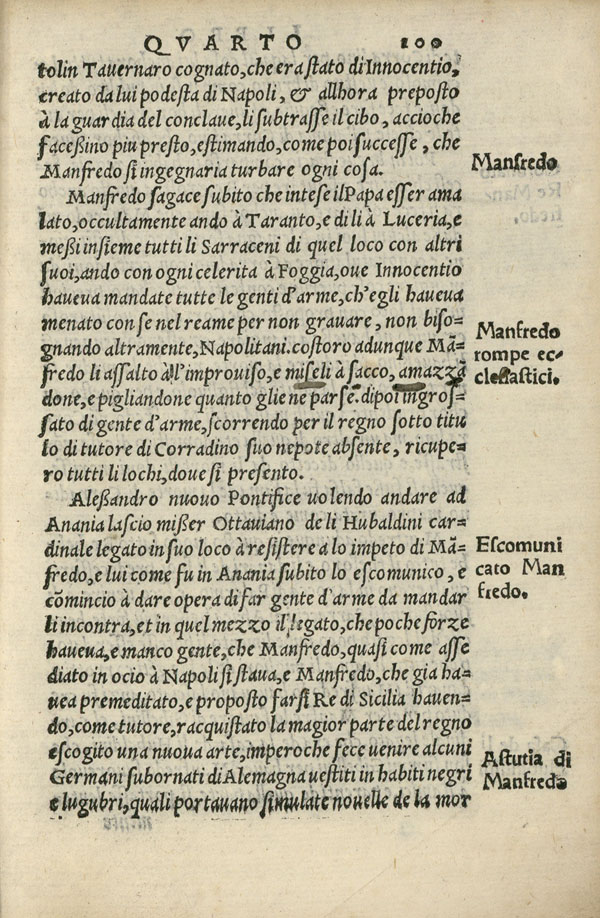 QVARTO 100
tolin Tauernaro cognato, che era stato di Innocentio,
creato da lui podesta di Napoli, & allhora preposto
à la guardia del conclaue, li subtrasse il cibo, accioche
faceßino piu presto, estimando, come poi successe, che
Manfredo si ingegnaria turbare ogni cosa.
Manfredo
Manfredo sagace subito che intese il Papa esser ama
lato, occultamente ando à Taranto, e di li à Luceria, e
meßi insieme tutti li Sarraceni di quel loco con altri
suoi, ando con ogni celerita à Foggia, oue Innocentio
haueua mandate tutte le genti d'arme, ch'egli haueua
menato con se nel reame per non grauare, non biso=
gnando altramente, Napolitani. costoro adunque Mã=
fredo li assalto à l'improuiso, e miseli à sacco, amazzã
done, e pigliandone quanto gliene parse. dipoi ingros=
sato di gente d'arme, scorrendo per il regno sotto titu
lo di tutore di Corradino suo nepote absente, ricupe=
ro tutti li lochi, doue si presento.
Manfredo
rompe ec=
clesiastici.
Aleßandro nuouo Pontifice uolendo andare ad
Anania lascio mißer Ottauiano de li Hubaldini car=
dinale legato in suo loco à resistere a lo impeto di Mã=
fredo, e lui come fu in Anania subito lo escomunico, e
cõmincio à dare opera di far gente d'arme da mandar
li incontra, et in quel mezzo il legato, che poche forze
haueua, e manco gente, che Manfredo, quasi come asse
diato in ocio à Napoli si staua, e Manfredo, che gia ha=
uea premeditato, e proposto farsi Re di Sicilia hauen=
do, come tutore, racquistato la magior parte del regno
escogito una nuoua arte, imperoche fece uenire alcuni
Germani subornati di Alemagna uestiti in habiti negri
e lugubri, quali portauano simulate nouelle de la mor
Escomuni
cato Man
fredo.
Astutia di
Manfredo